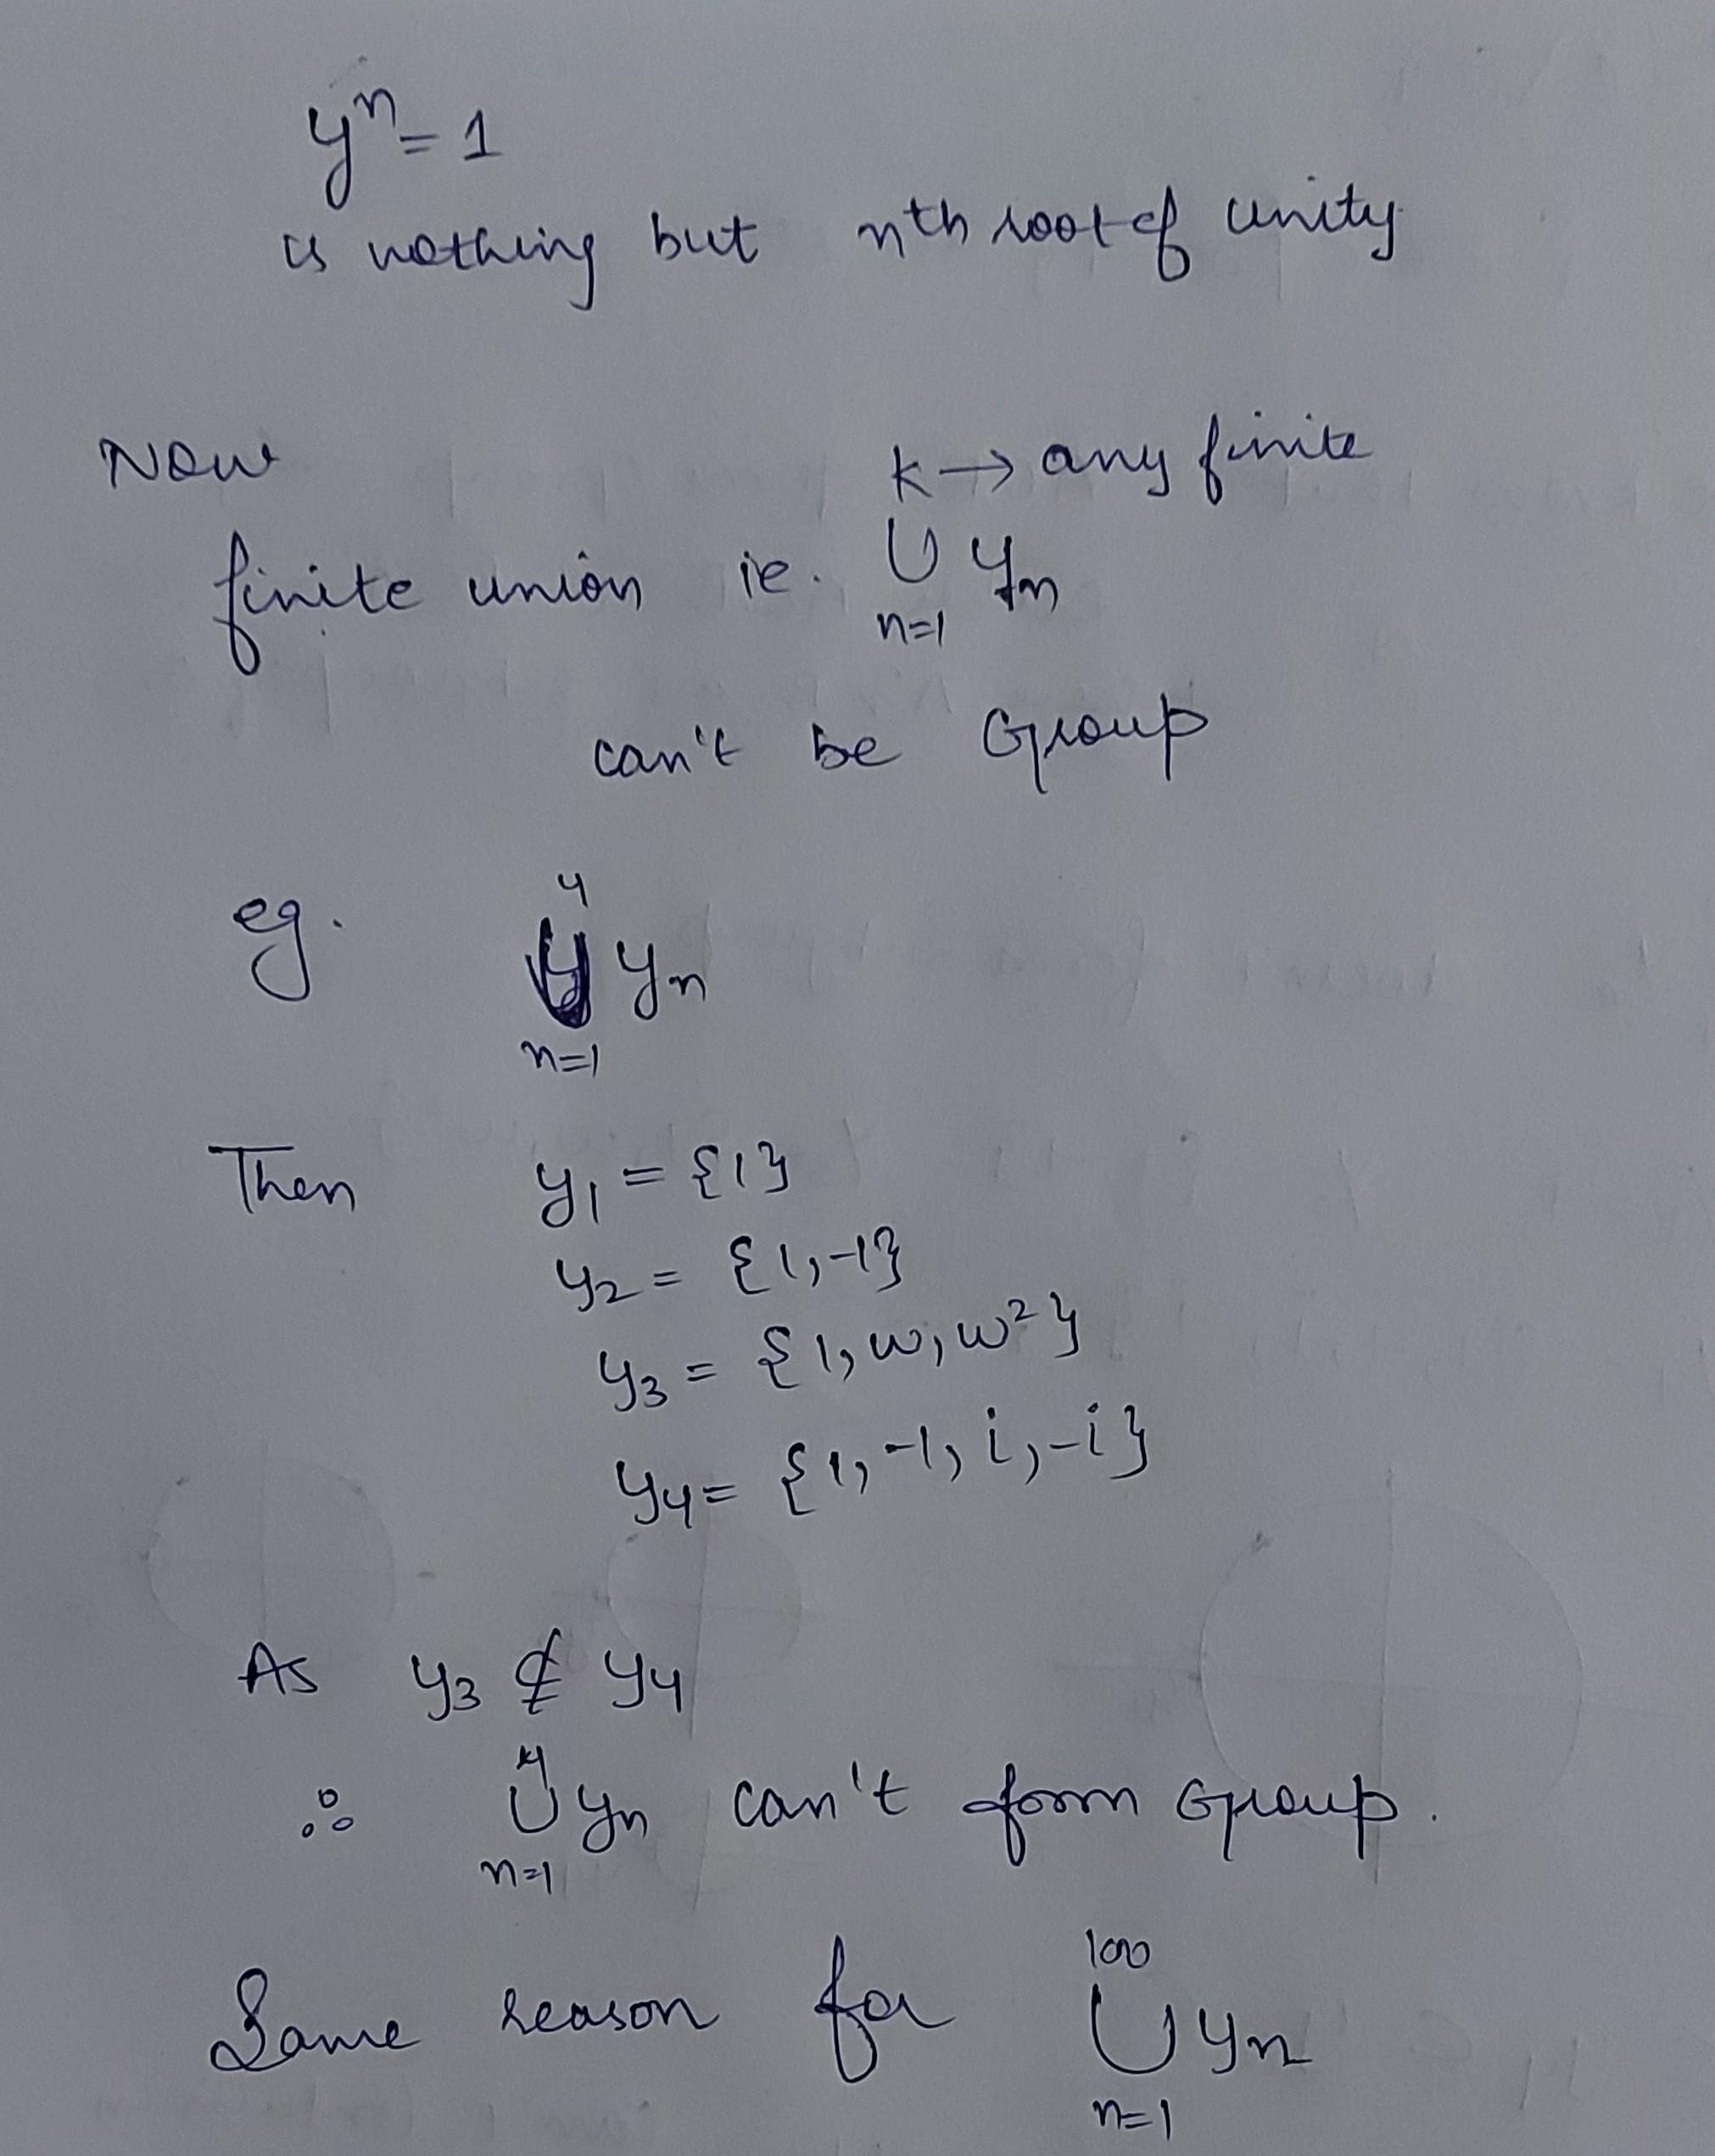 yⁿ = 1
is nothing but nth root of unity
Now k → any finite
finite union ie. ∪ yₙ
n=1
can't be Group
eg. 4
∪ yₙ
n=1
Then y₁ = {1}
y₂ = {1, -1}
y₃ = {1, w, w²}
y₄ = {1, -1, i, -i}
As y₃ ⊈ y₄
4
∴ ∪ yₙ can't form Group.
n=1
100
Same reason for ∪ yₙ
n=1